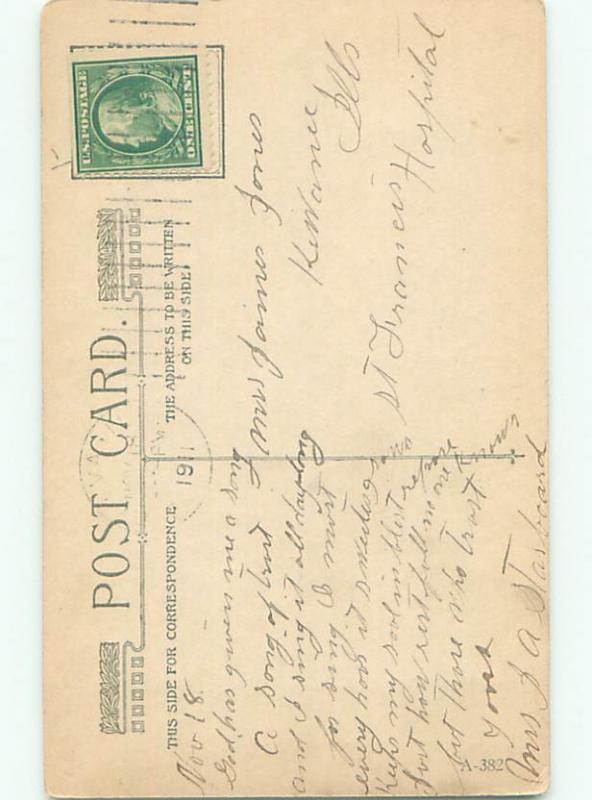 U.S. POSTAGE
ONE CENT
POST CARD.
THIS SIDE FOR CORRESPONDENCE
THE ADDRESS TO BE WRITTEN
ON THIS SIDE
1911
Nov 18
God has given me a song
A song of trust
and I sing it all day long
for sing I must
every hour it sweeter
Keeps my soul in blest
Just how restful
but those who trust
yours
Mrs S A
Mrs James Jones
Kewanee
Ills
St Francis Hospital
A-382